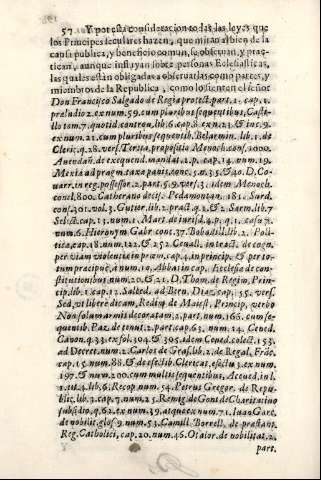 57 Y por esta consideracion todas las leyes que
los Principes seculares hazen, que miran al bien de la
causa publica, y beneficio comun, se obseruan, y prac-
tican, aunque influyan sobre personas Eclesiasticas,
las quales estàn obligadas a obseruarlas como partes, y
miembros de la Republica, como lo sienten el señor
Don Francisco Salgado de Regia protect. part. 1. cap. 1.
præludio 2. ex num. 59. cum pluribus sequentibus, Casti-
llo tom. 7. quotid. controu. lib. 6. cap. 8. ex n. 21. & inc. 9.
ex num. 21. cum pluribus sequentib. Belarmin. lib. 1. de
Cleric. q. 28. vers. Tertia propositio Menoch. cons. 1000.
Auendañ. de exequend. mandat. 1. p. cap. 14. num. 19.
Mexia ad pragm. taxa panis, conc. 5. n. 35. & 40. D. Co-
uarr. in reg. possessor. 2. part. §. 9. vers. 3. idem Menoch.
concl. 800. Catherano decis. Pedamontan. 181. Surd.
cons. 301. vol. 3. Gutier. lib. 2. pract. q. 1. & 2. Sarm. lib. 7.
Select. cap. 13. num. 1. Mart. de iurisd. 4. p. q. 1. casu 7.
num. 6. Hieronym Gabr. cons. 37. Bobadill. lib. 2. Poli-
tica, cap. 18. num. 122. & 252. Ceuall. in tract. de cogn.
per viam violentiæ in præm. cap. 4. in princip. & per to-
tum præcipuè, a num. 10. Abbas in cap. Ecclesia de con-
stitutionibus num. 20. & 21. D. Thom. de Regim. Prin-
cip. lib. 1. cap. 12. Salced. ad Bern. Diaz cap. 55. vers.
Sed vt liberè dicam, Redin. de Maiest. Princip. verbo
Non solum armis decoratam 2. part. num. 166. cum se-
quentib. Paz. de tenut. 2. part. cap. 63. num. 14. Cened.
Canon. q. 33. ex fol. 304. & 305. idem Cened. colect. 153.
ad Decret. num. 2. Carlos de Gras. lib. 2. de Regal. Frãc.
cap. 15. num. 88. & de effectib. Clericat. effectu 3. ex num.
197. & num. 200. cum multis sequentibus, Aceued. in l.
1. tit. 4. lib. 6. Recop. num. 54. Petrus Gregor. de Repu-
blic. lib. 3. cap. 7. num. 25. Remig. de Gont de Charitatiuo
subsidio, q. 62. ex num. 39. atque ex num. 71. Iuan Garc.
de nobilit. glos. 9. num. 53. Camill. Borrell. de præstant.
Reg. Catholici, cap. 20. num. 46. Otalor. de nobilitat. 2.
part.